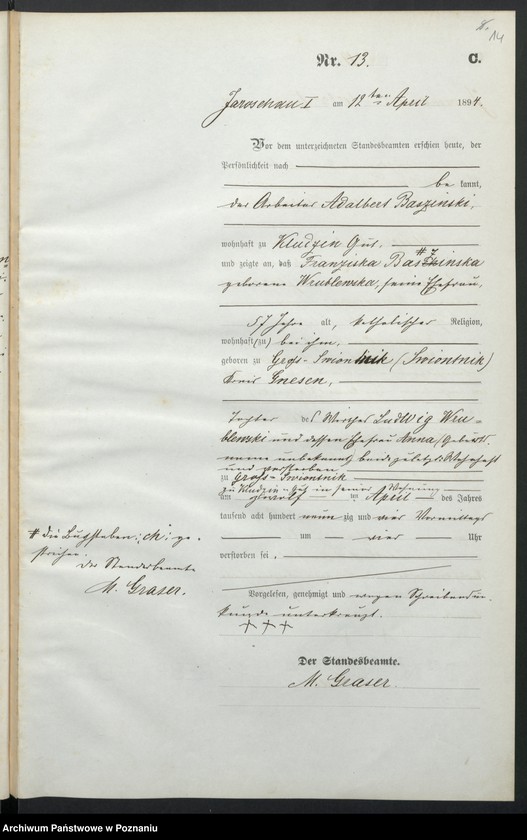 14
Nr. 13. C.
Jaroschau I am 12ten April 1894.
Vor dem unterzeichneten Standesbeamten erschien heute, der
Persönlichkeit nach
be kannt,
der Arbeiter Adalbert Baszinski,
wohnhaft zu Kludzin Gut.
und zeigte an, daß Franziska Baszinska
geborene Wrublewska, seine Ehefrau,
57 Jahre alt, katholischer Religion,
wohnhaft (zu) bei ihm,
geboren zu Groß-Swiontnik (Swiontnik)
Kreis Gnesen,
Tochter des Ludwig Wru-
blewski und dessen Ehefrau Anna, Geburts-
name unbekannt, beide zuletzt wohnhaft
und verstorben
zu Groß-Swiontnik
zu Kludzin-Gut in seiner Wohnung
am zwölften April des Jahres
tausend acht hundert neunzig und vier Vormittags
um vier Uhr
verstorben sei.
Vorgelesen, genehmigt und wegen Schreibensun-
kunde unterkreuzt.
+++
Der Standesbeamte.
M. Graser.
# die Buchstaben: ge-
strichen.
Der Standesbeamte
M. Graser.
Archiwum Państwowe w Poznaniu